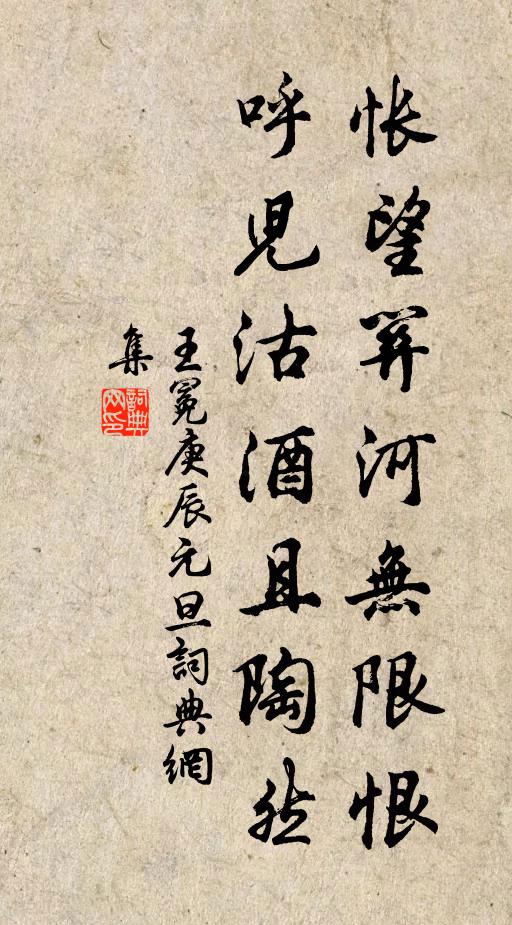 悵望關河無限恨
呼兒沽酒且陶然
王冕庚辰元旦詞典網
集
詞典網印